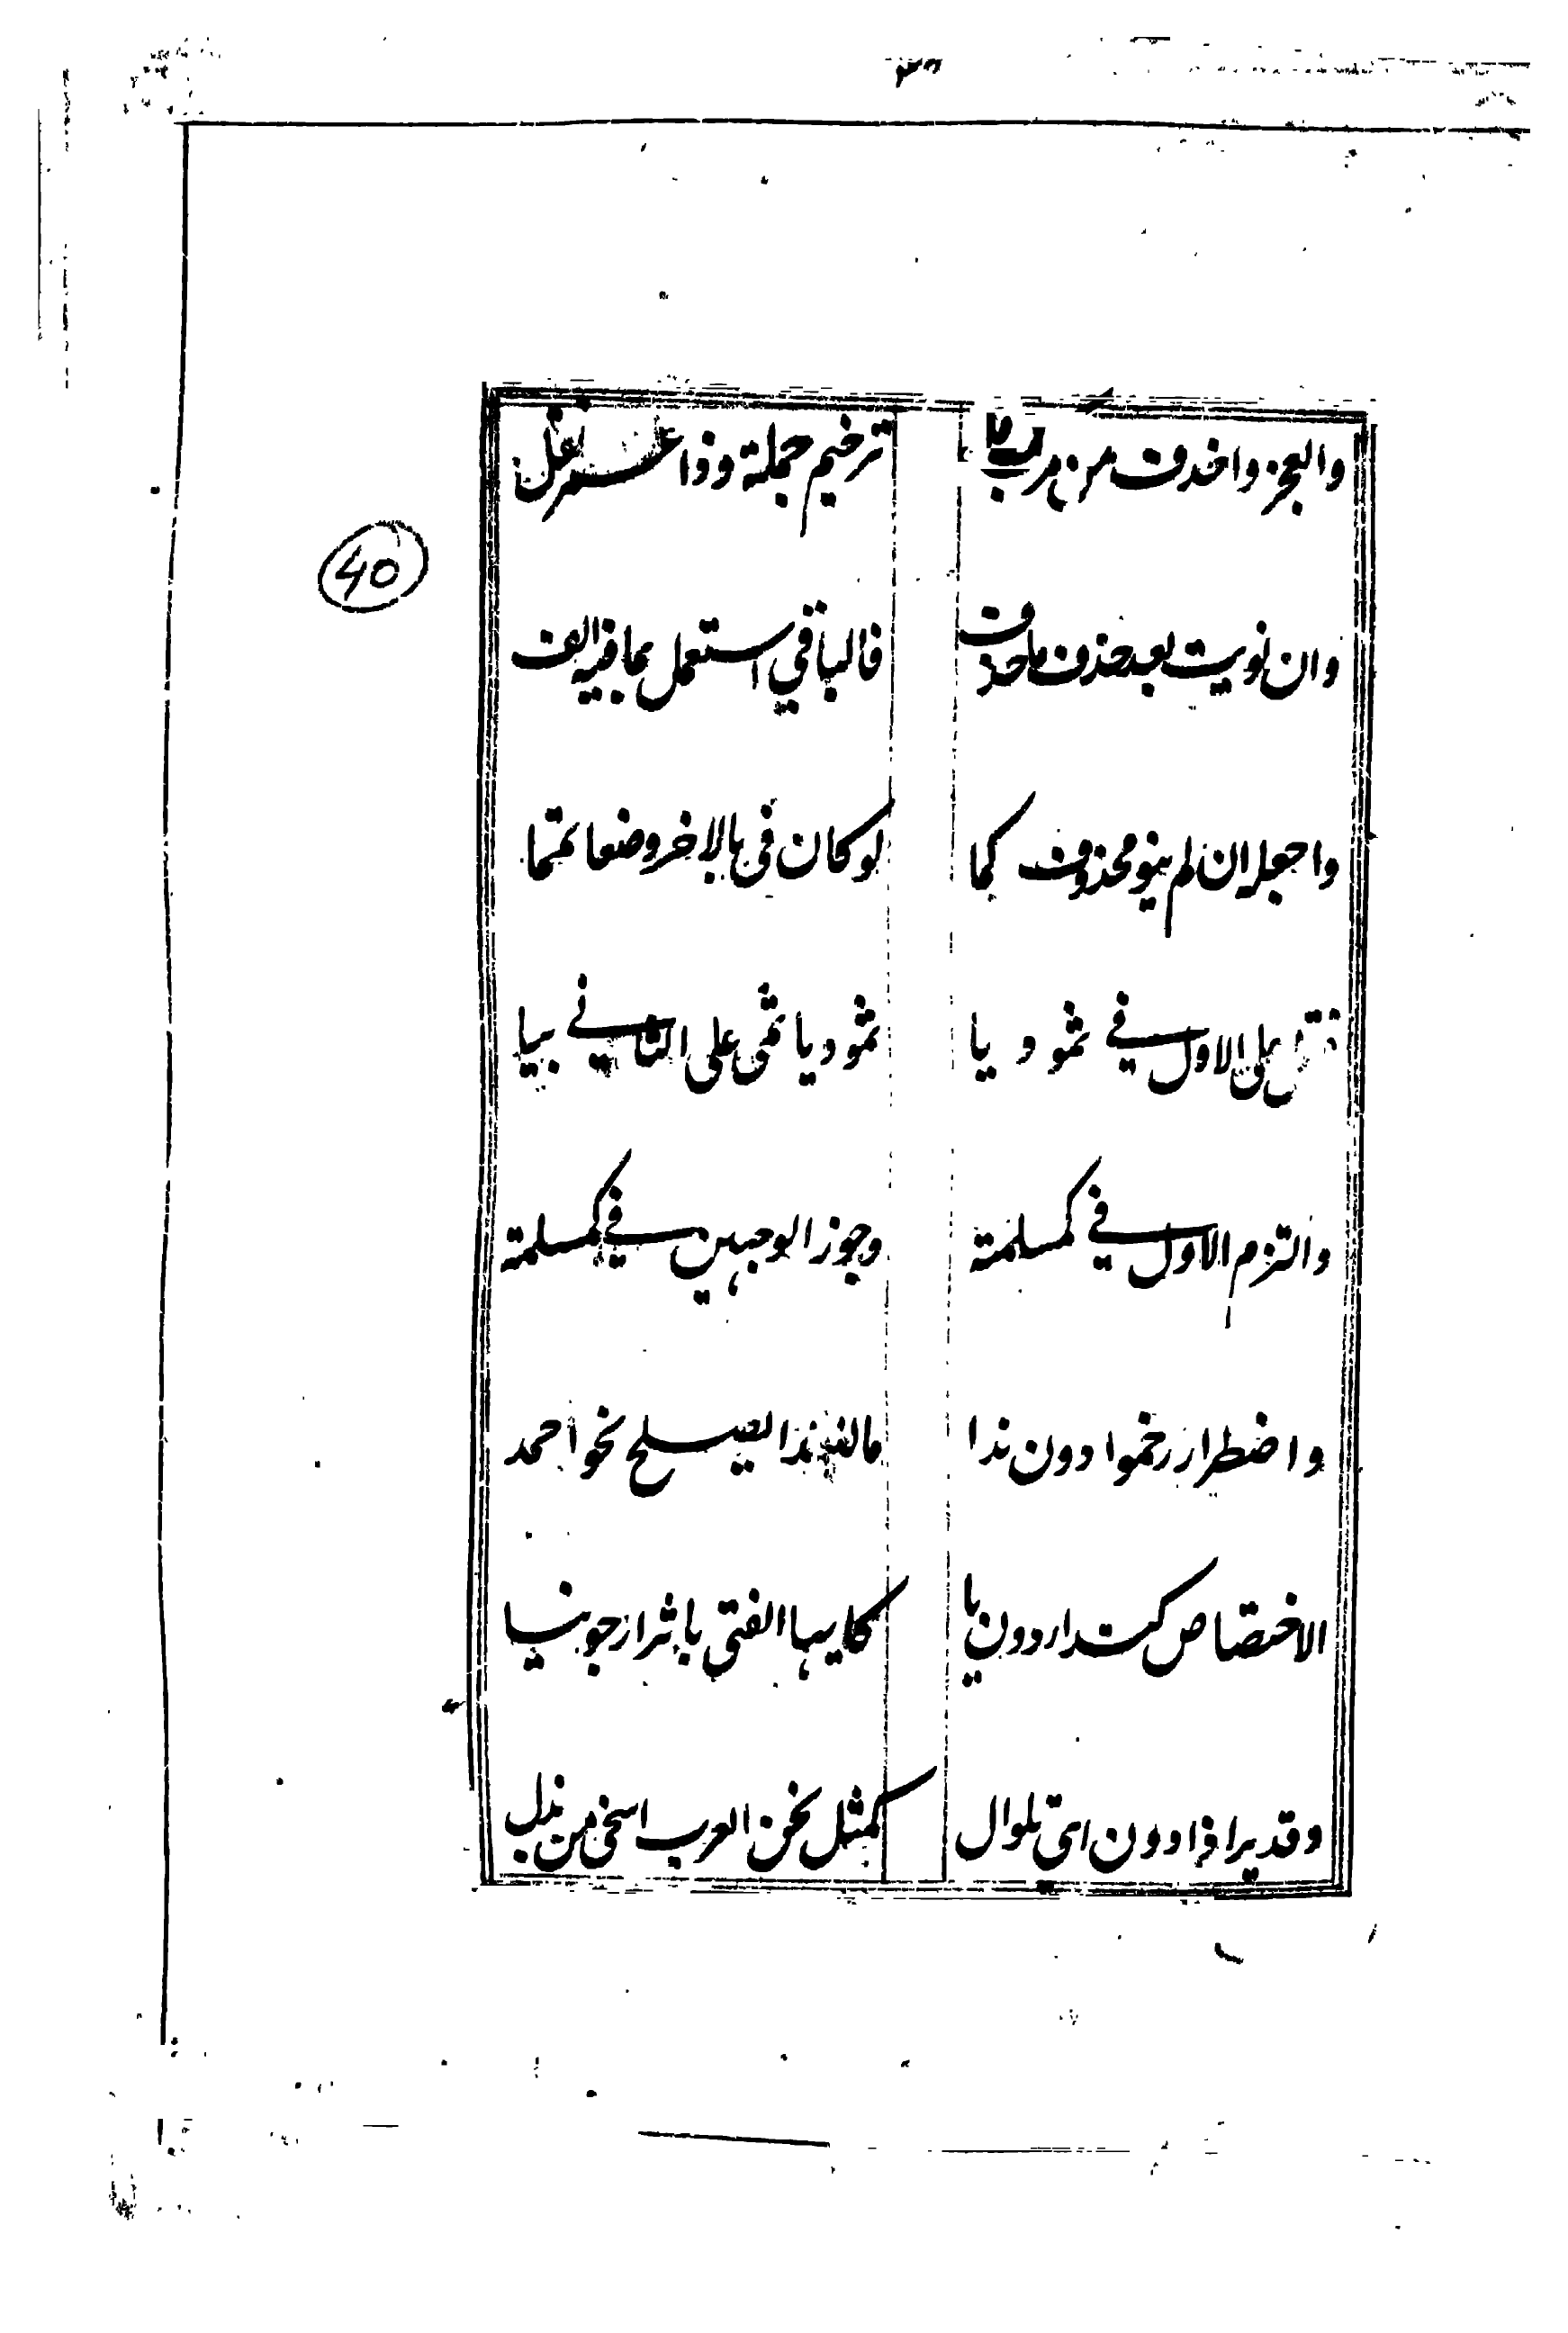 والعجز واحذف من مركب ترخيم جملة وذا عمرو نقل
وان نويت بعد حذف ما حذف فالباقي استعمل بما فيه الف
واجعله ان لم ينو محذوف كما لو كان في بالاخر وضعا تمما
على الاول في ثمو ويا ثمو ويا ثمي على الثاني بيا
والتزم الاول في كمسلمة وجوز الوجهين في كمسلمة
واضطرار رخموا دون ندا ما للندا يصلح نحو احمد
الاختصاص كنداء دون يا كايها الفتى باثر ارجونيا
وقد يرا ذا دون اي تلو ال كمثل نحن العرب اسخى من بذل
40